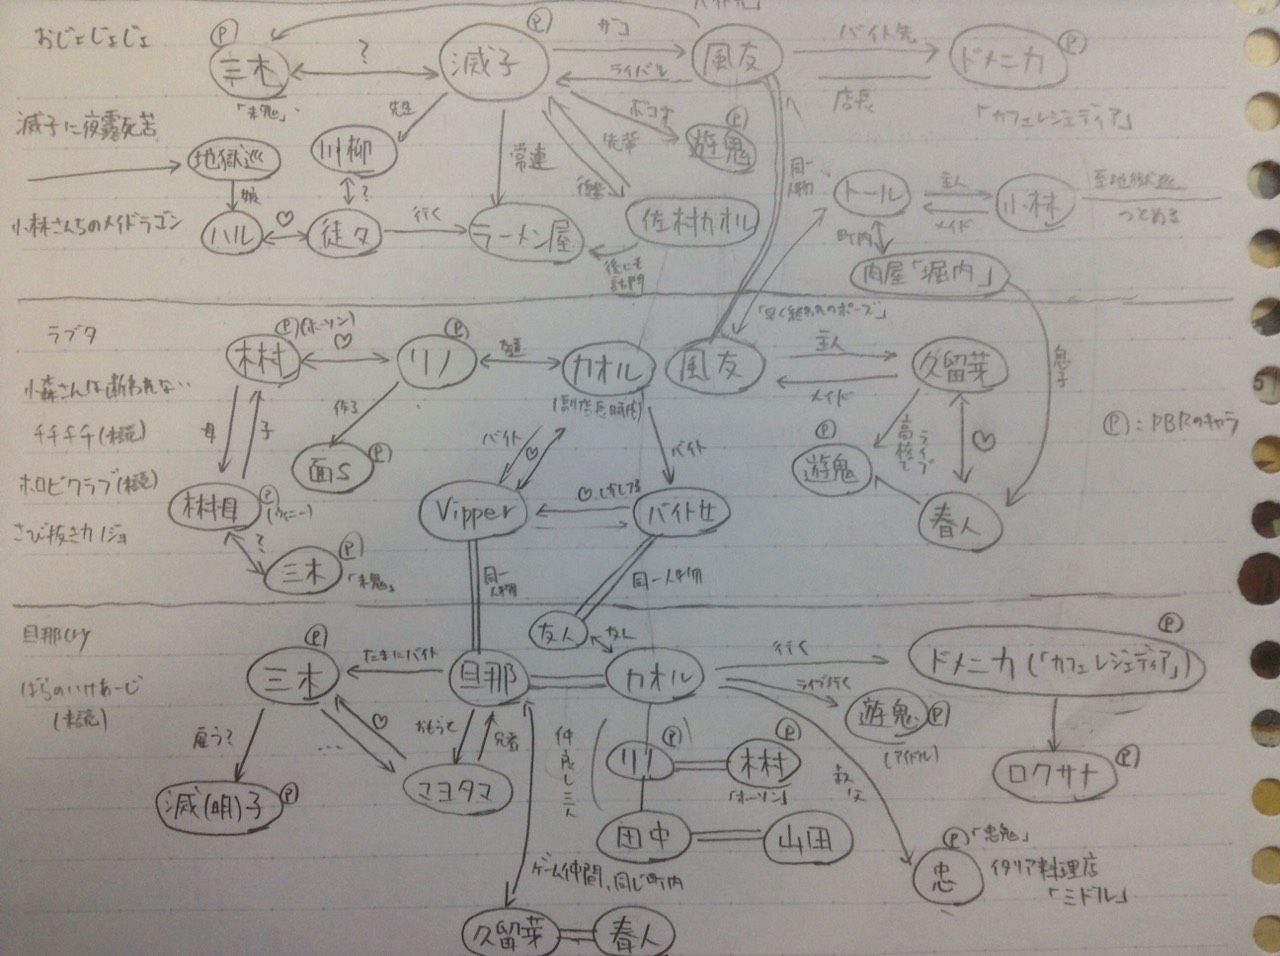 おじょじょじょ
Ⓟ
三木
「未鬼」
?
Ⓟ
滅子
ザコ
ライバル
風友
バイト先
店長
ドメニカ
Ⓟ
「カフェレジェディア」
滅子に夜露死苦
地獄巡
娘
川柳
先生
常連
先輩
後輩
遊鬼
Ⓟ
同一人物
トール
主人
メイド
小林
つとめる
小林さんちのメイドラゴン
ハル
♡
徒々
?
行く
ラーメン屋
佐村カオル
後にも訪問
町内
肉屋「堀内」
息子
ラブタ
小森さんは断われない
チチチチ(未読)
ホロビクラブ(未読)
さび抜きカノジョ
林村
Ⓟ(ホーソン)
♡
リノ
Ⓟ
友達
カオル
(副店長時代)
風友
主人
メイド
久留芽
Ⓟ:PBRのキャラ
母
子
作る
面S
Ⓟ
バイト
♡
バイト
遊鬼
Ⓟ
♡
春人
林母
Ⓟ
Vipper
バイト女
?
三木
Ⓟ
「未鬼」
同一人物
同一人物
旦那 ly
ばらのいけあーじ
(未読)
友人
なし
三木
Ⓟ
たまにバイト
旦那
カオル
行く
ドメニカ(「カフェレジェディア」)
Ⓟ
ライブ行く
遊鬼
Ⓟ
(アイドル)
雇う?
滅(明)子
Ⓟ
♡
…
おもうと
兄者
マヨタマ
仲良し三人
リノ
Ⓟ
林村
Ⓟ
「ホーソン」
ロクサナ
Ⓟ
田中
山田
ゲーム仲間、同じ町内
忠
Ⓟ「忠鬼」
イタリア料理店
「ミドル」
久留芽
春人